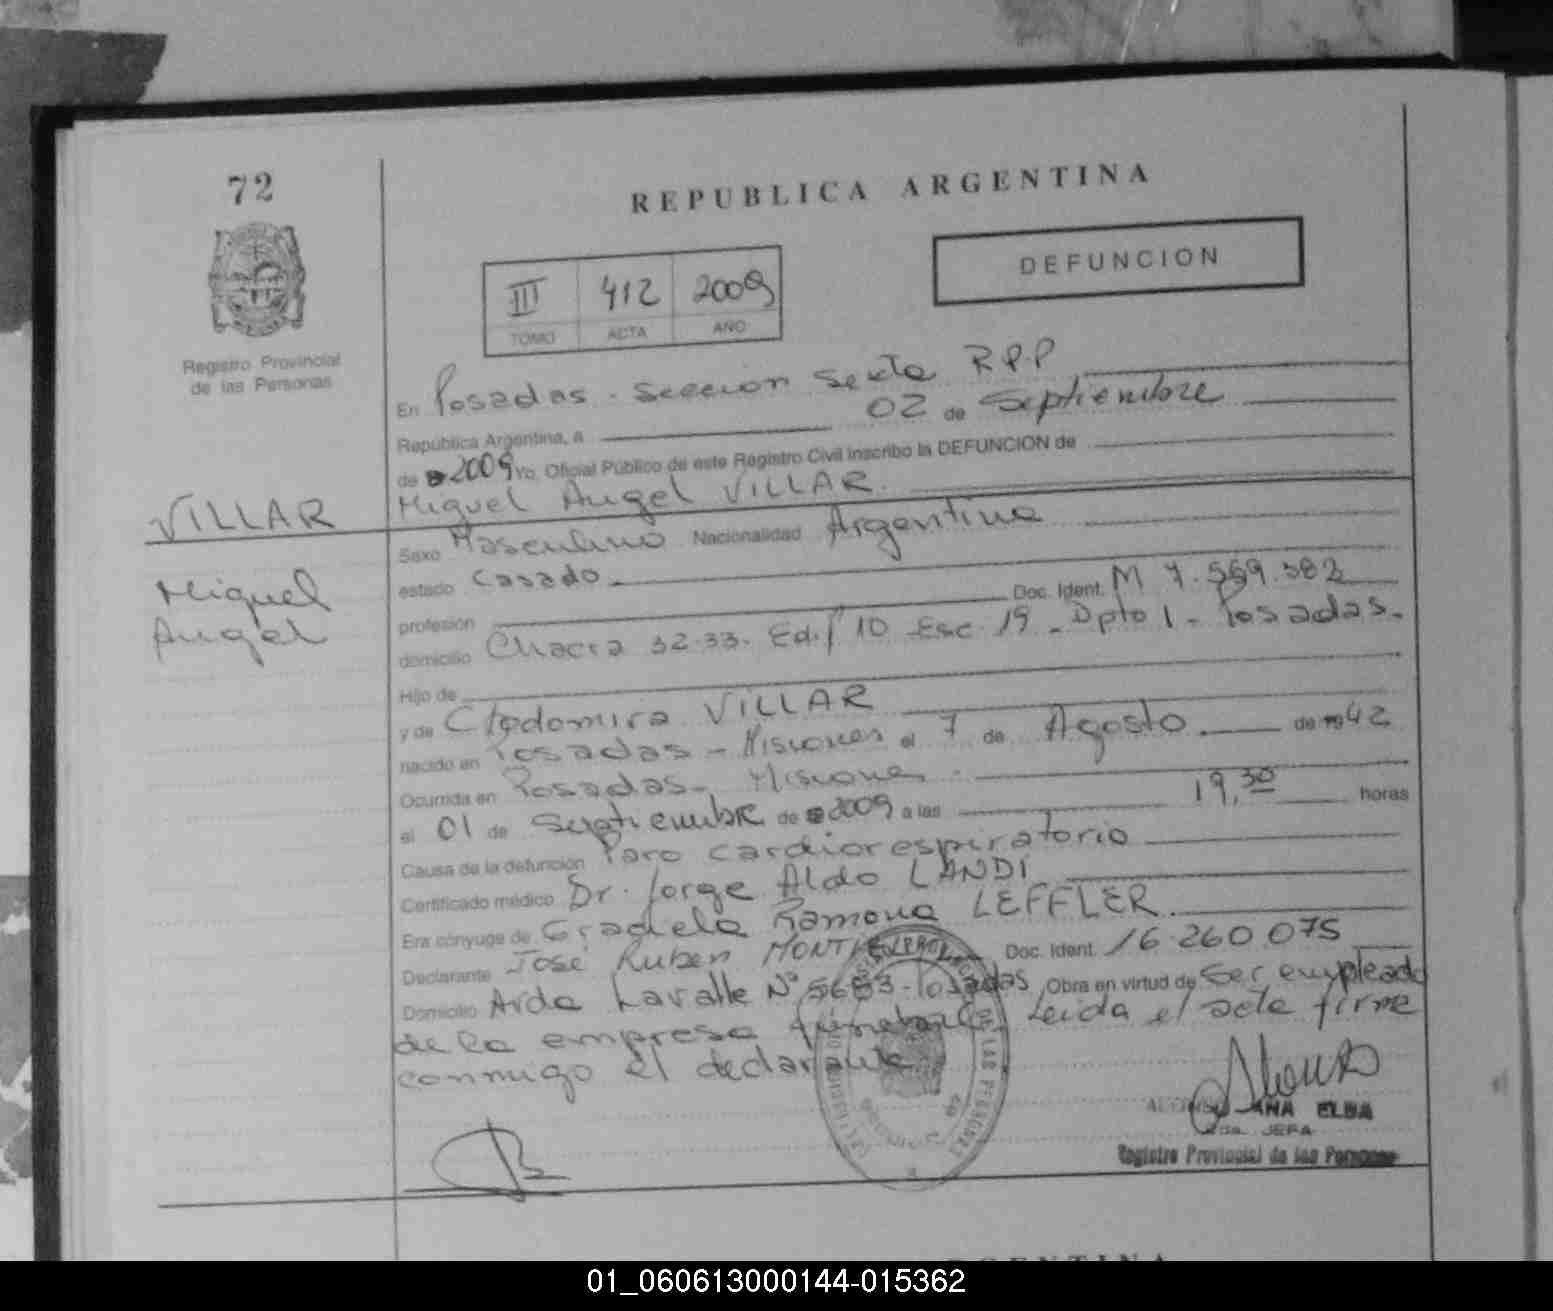 72
REPUBLICA ARGENTINA
Registro Provincial
de las Personas
III 412 2009
TOMO ACTA AÑO
DEFUNCION
En Posadas - Seccion Sexta RPP
República Argentina, a 02 de Septiembre
de 2009 Yo, Oficial Público de este Registro Civil inscribo la DEFUNCION de
VILLAR
Miguel Angel VILLAR
Miguel
Angel
Sexo Masculino Nacionalidad Argentina
estado Casado
profesión Doc. Ident. M 7.559.382
domicilio Chacra 32-33. Edif 10 Esc 19 - Dpto 1 - Posadas.
Hijo de
y de Clodomira VILLAR
nacido en Posadas - Misiones el 7 de Agosto de 1942
Ocurrida en Posadas - Misiones
el 01 de Septiembre de 2009 a las 19,30 horas
Causa de la defunción Paro cardiorespiratorio
Certificado médico Dr. Jorge Aldo LANDI
Era cónyuge de Graciela Ramona LEFFLER
Declarante José Ruben Doc. Ident. 16.260.075
Domicilio Avda Lavalle N° 5683 - Posadas Obra en virtud de Ser empleado
de la empresa funebre. Leida el acta firma
conmigo el declarante
ANA ELBA
JEFA
Registro Provincial de las Personas
ARGENTINA
01_060613000144-015362